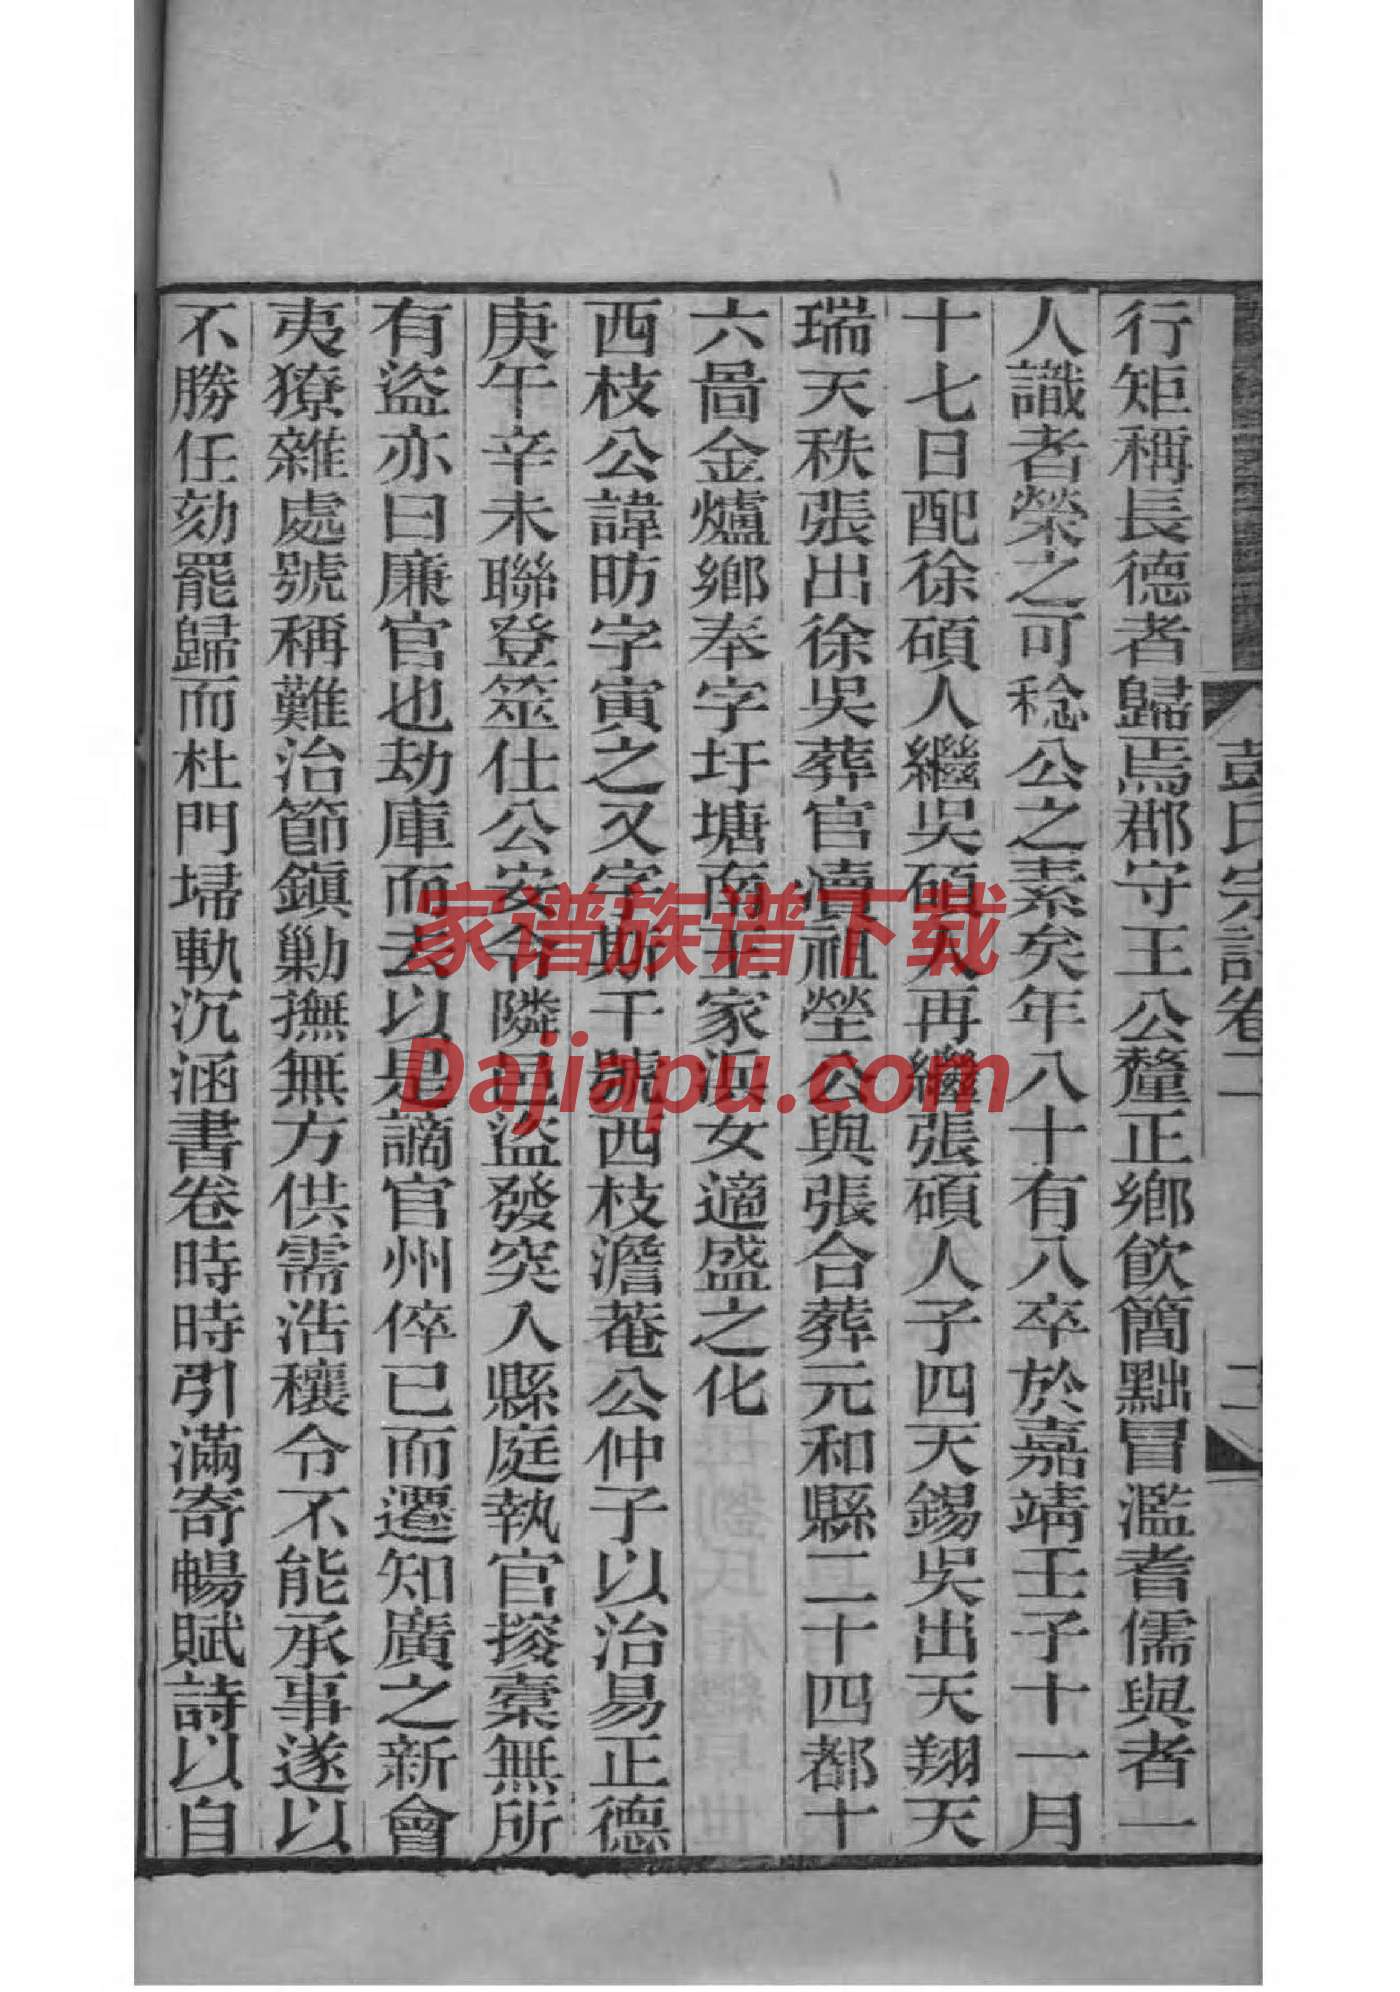 彭氏宗譜卷二
行矩稱長德者歸焉郡守王公釐正鄉飲簡黜冒濫耆儒與者一
人識者榮之可稔公之素矣年八十有八卒於嘉靖壬子十一月
十七日配徐碩人繼吳碩人再繼張碩人子四天錫吳出天翔天
瑞天秩張出徐吳葬官瀆祖塋公與張合葬元和縣二十四都十
六啚金爐鄉奉字圩塘南王家浜女適盛之化
西枝公諱昉字寅之又字斯干號西枝澹菴公仲子以治易正德
庚午辛未聯登筮仕公安令隣邑盜發突入縣庭執官搜橐無所
有盜亦曰廉官也劫庫而去以是謫官州倅已而遷知廣之新會
夷獠雜處號稱難治節鎮勦撫無方供需浩穰令不能承事遂以
不勝任劾罷歸而杜門埽軌沉涵書卷時時引滿寄暢賦詩以自
家谱族谱下载
Dajiapu.com